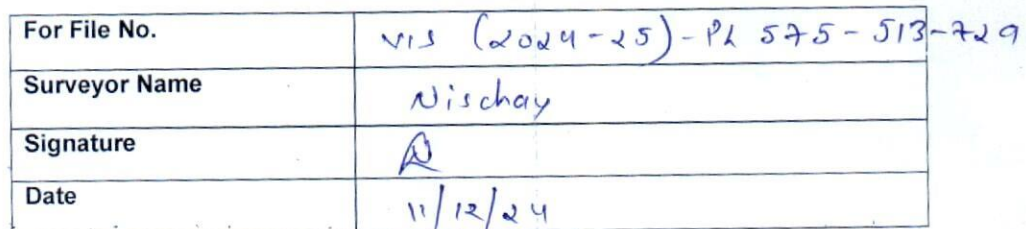 For File No. VIS (2024-25)-PL 575-513-729
Surveyor Name Nischay
Signature
Date 11/12/24